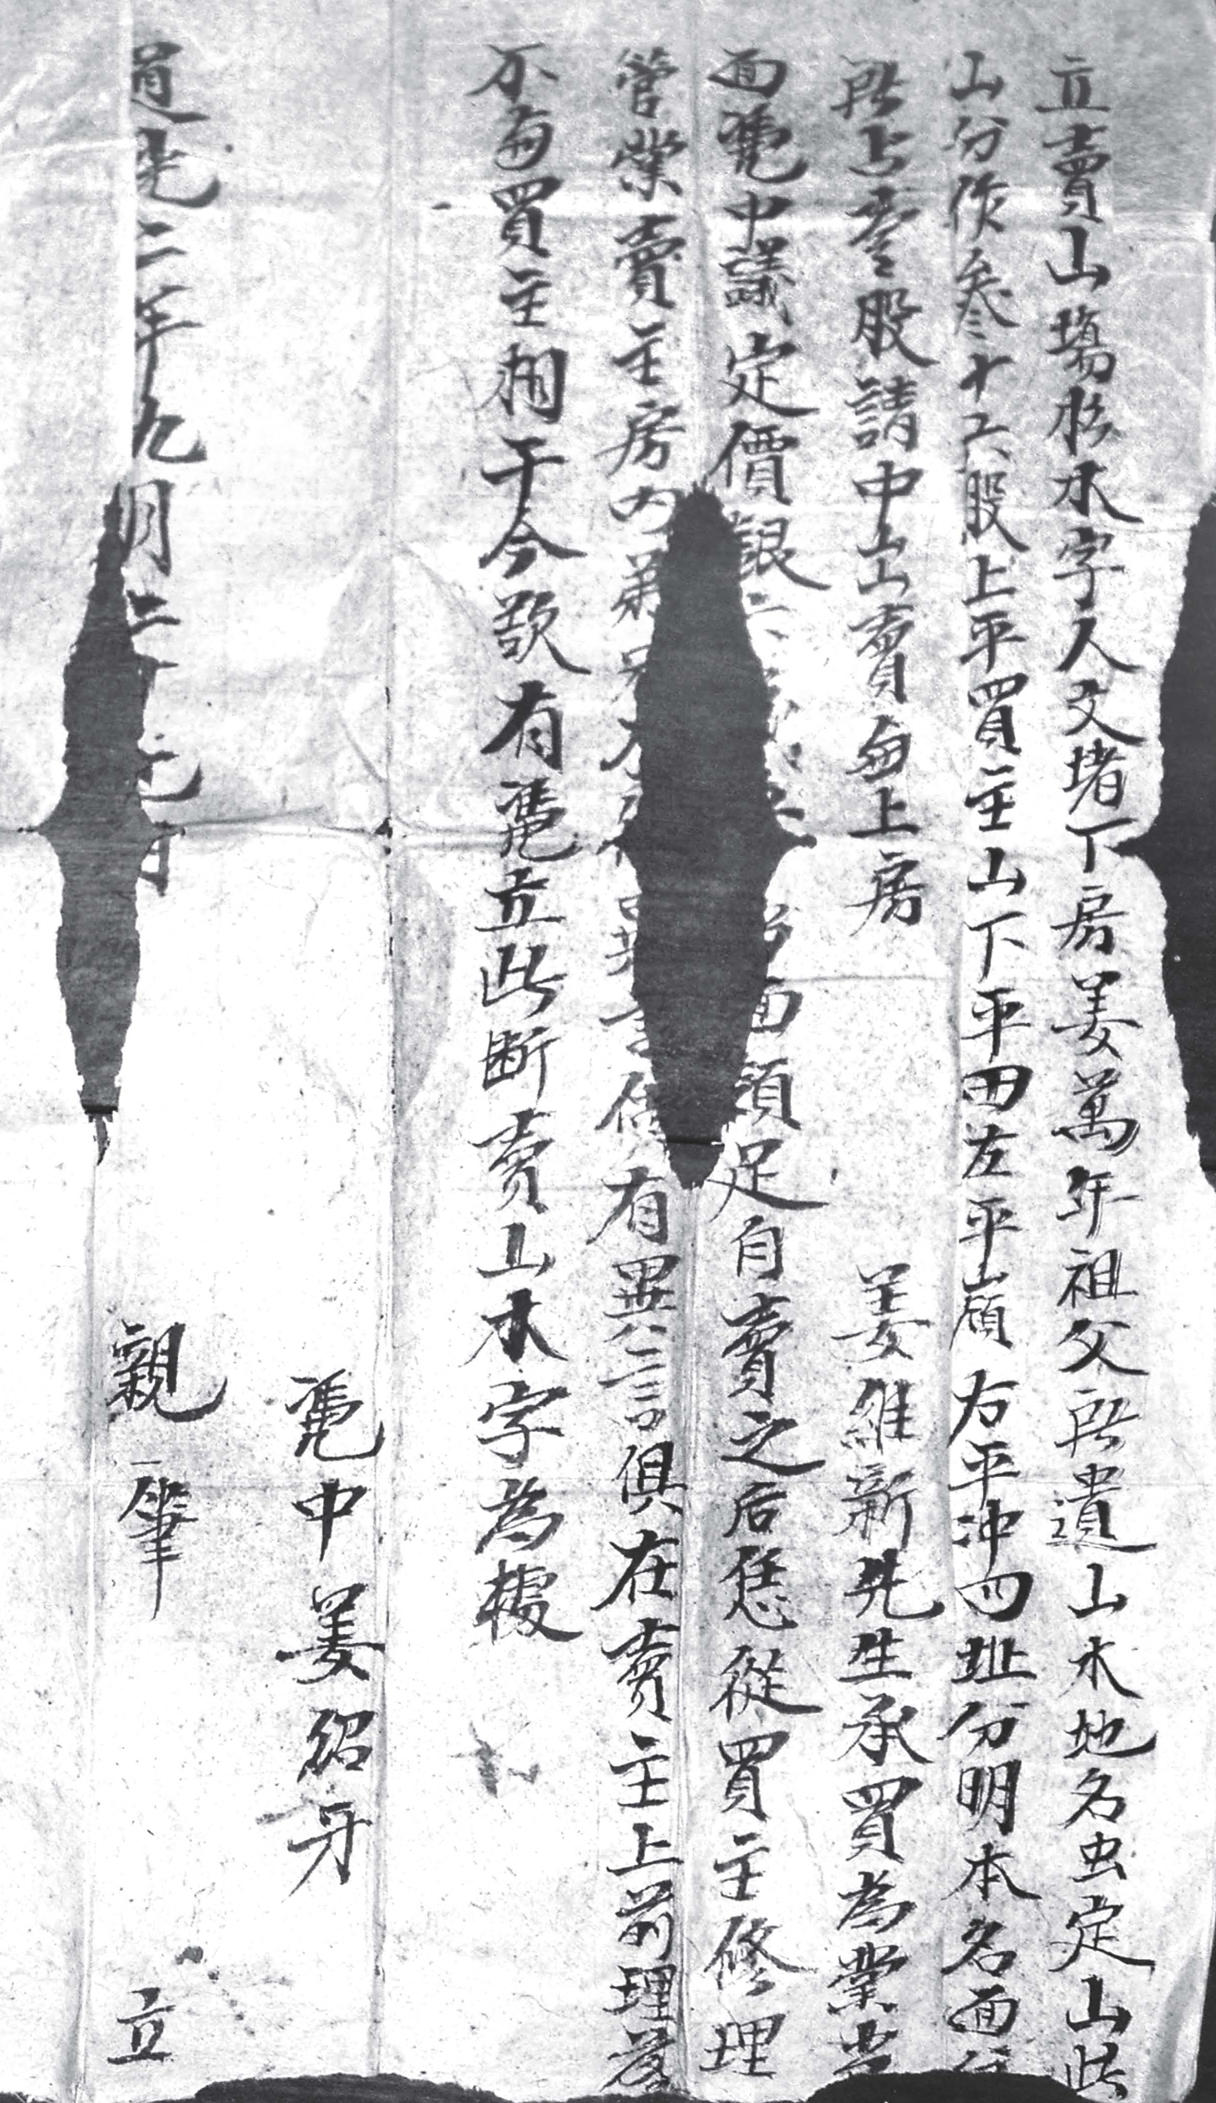 立賣山塲杉木字人文堵下房姜萬年祖父所遺山木地名虫定山此
山分作叁十六股上平買主山下平田左平嶺右平冲四址分明本名面
所占壹股請中出賣與上房 姜維新先生承買為業當
面凴中議定價銀 面領足自賣之后恁從買主修理
管業賣主房内弟 有異言俱在賣主上前理落
不與買主相干今欲有凴立此断賣山木字為據
凴中姜紹牙
道光二年九月二十 親筆 立